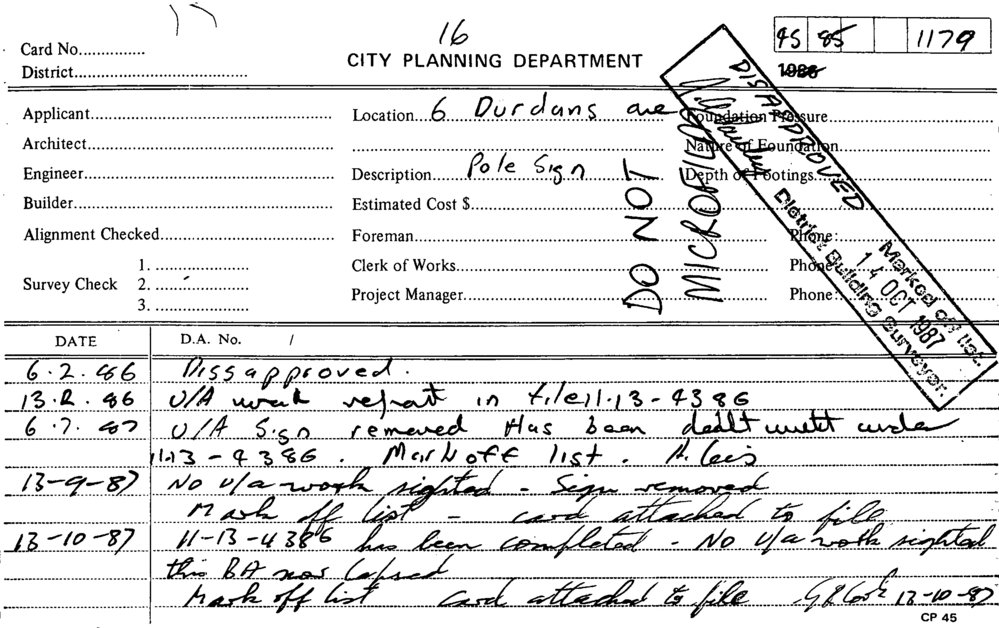 16
Card No.............. CITY PLANNING DEPARTMENT 45 85 1179
District........................................ 1986
Applicant........................................ Location 6 Durdans ave Foundation Pressure
Architect........................................ Nature of Foundation
Engineer........................................ Description Pole Sign Depth of Footings
Builder........................................ Estimated Cost $
Alignment Checked.............................. Foreman Phone:
1. ................ Clerk of Works Phone:
Survey Check 2. ................
3. ................ Project Manager Phone:
DO NOT
MICROFILM
DISAPPROVED
Marked off list.
14 OCT 1987
District Building Surveyor.
DATE D.A. No. /
6.2.86 Dissapproved.
13.2.86 U/A work report in file 11.13-4386
6.7.87 U/A Sign removed Has been dealt with under
11.13-4386. Mark off list.
13-9-87 No u/a work sighted - Sign removed
Mark off list - card attached to file
13-10-87 11-13-4386 has been completed - No u/a work sighted
this BA now lapsed
Mark off list card attached to file 13-10-87
CP 45